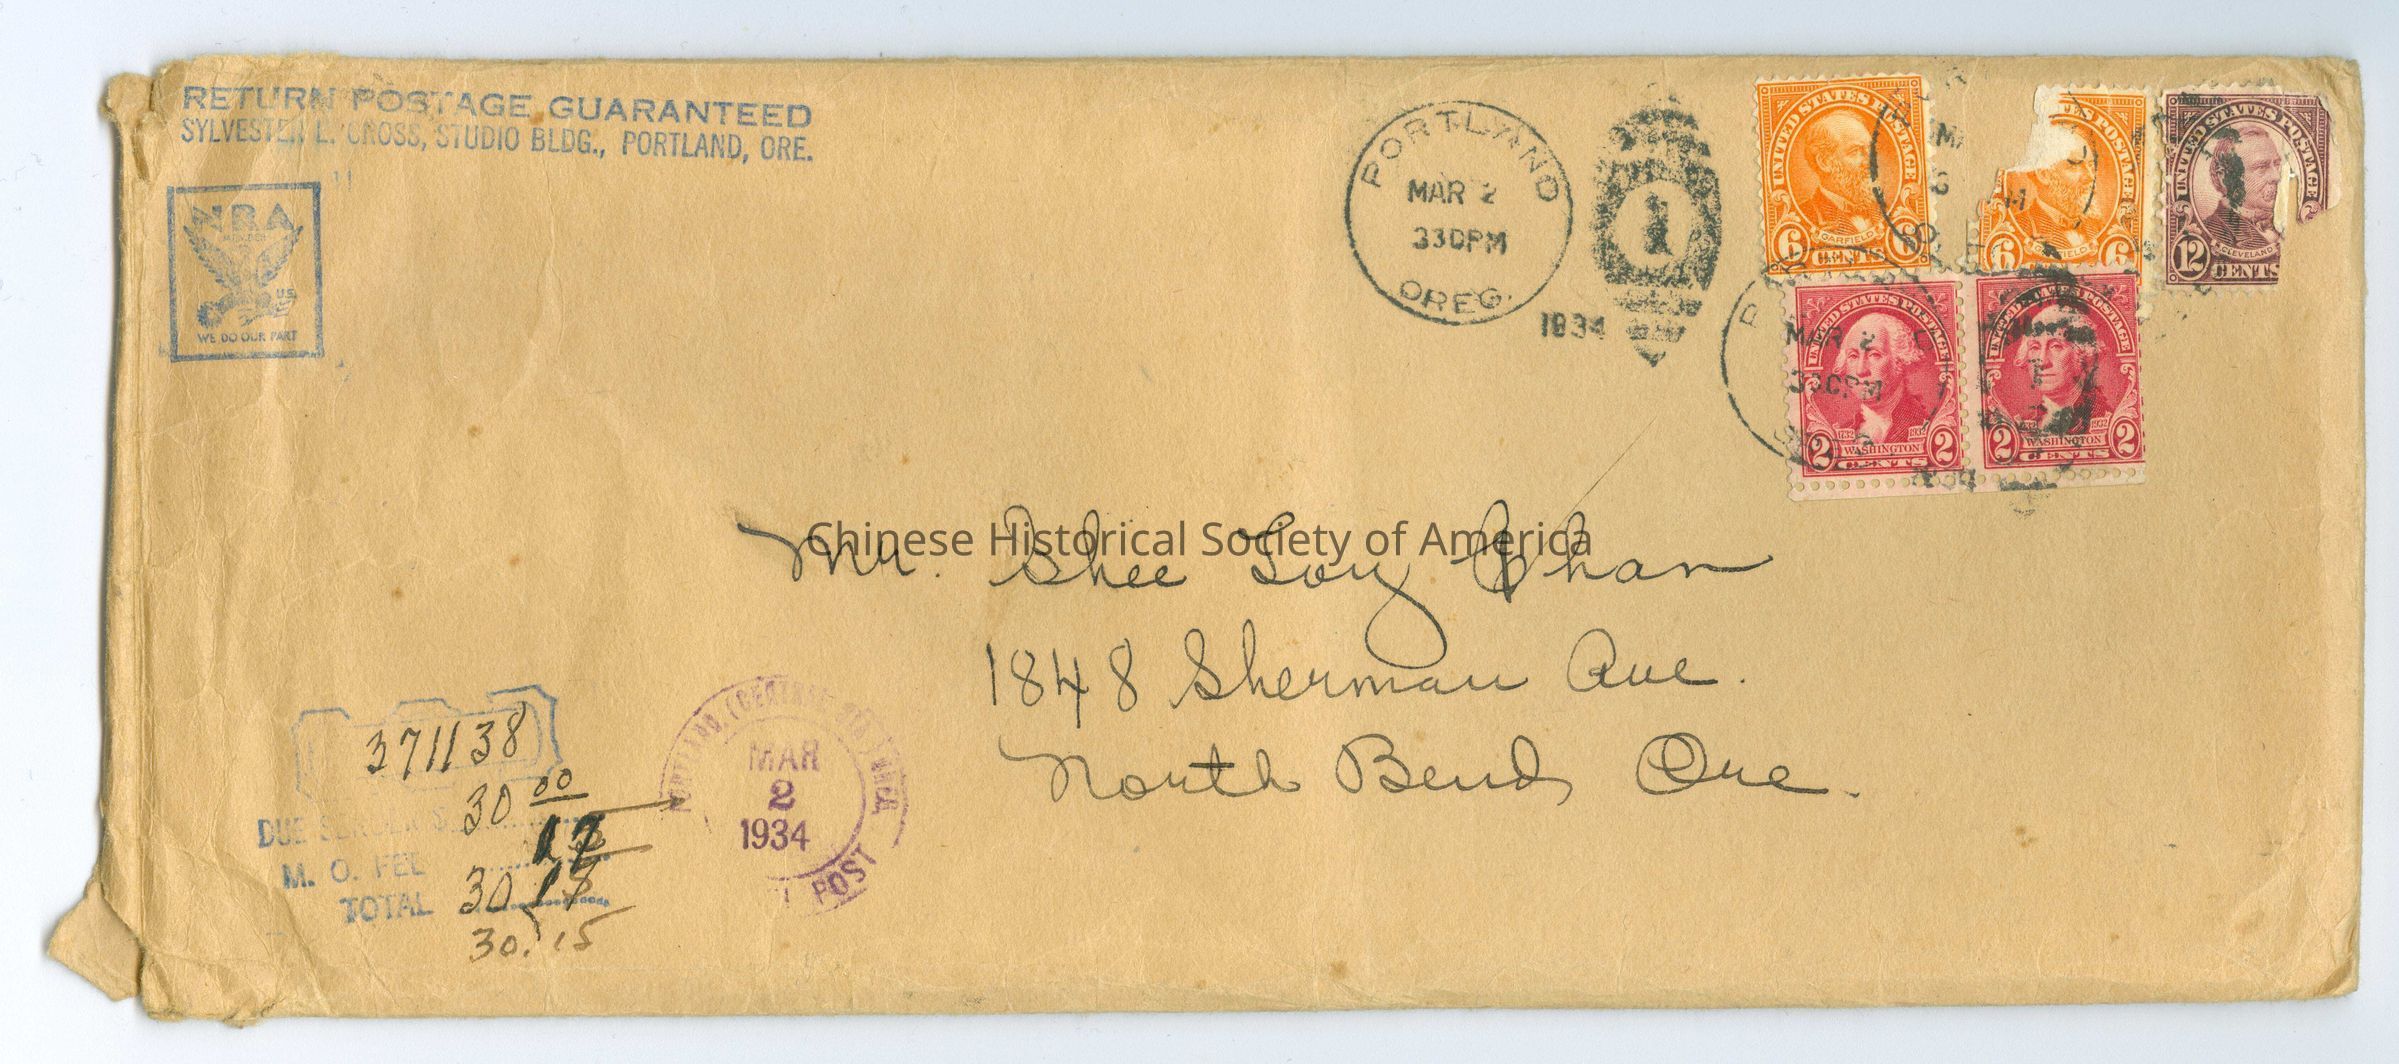 RETURN POSTAGE GUARANTEED
SYLVESTER L. CROSS, STUDIO BLDG., PORTLAND, ORE.
NRA
MEMBER
U.S.
WE DO OUR PART
PORTLAND
MAR 2
330PM
OREG.
1934
1
UNITED STATES POSTAGE
GARFIELD
6 CENTS 6
UNITED STATES POSTAGE
12 CLEVELAND
CENTS
MAR 2
330PM
1934
UNITED STATES POSTAGE
1732 1932
2 WASHINGTON 2
CENTS
UNITED STATES POSTAGE
1932
2 WASHINGTON 2
CENTS
Chinese Historical Society of America
Mr. Shee Toy Chan
1848 Sherman Ave.
North Bend, Ore.
371138
30 00
DUE SENDER $
17
M. O. FEE
TOTAL 30 17
30.15
PORTLAND, (CENTRAL STA.) OREG.
MAR
2
1934
POST